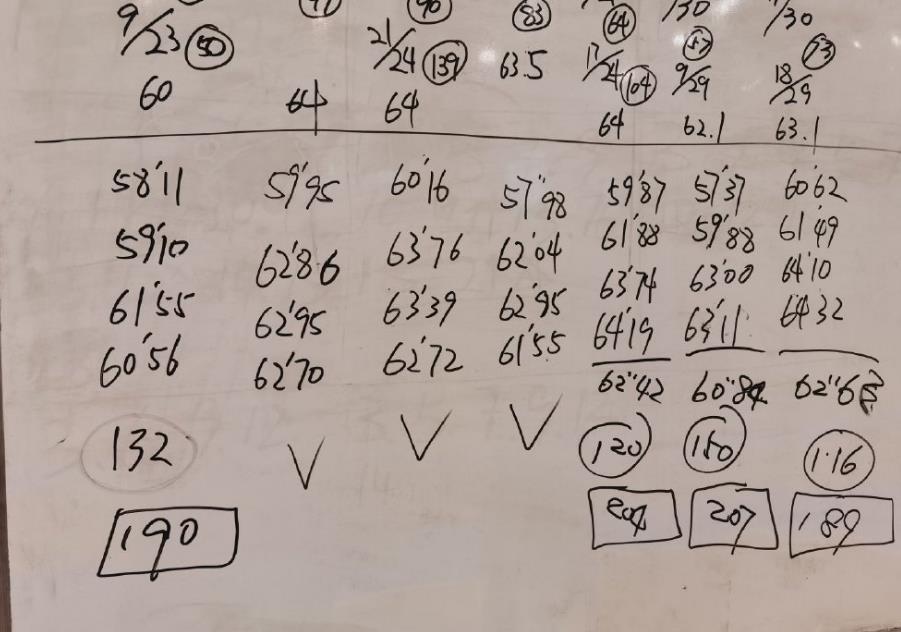 9/23 (50) 21/24 (139) (83) (64) /30 /30
63.5 17/24 (104) 9/29 18/29 (73)
60 64 64 64 62.1 63.1
58'11 59'95 60'16 57"98 59'87 57'37 60'62
59'10 62'86 63'76 62'04 61'88 59'88 61'49
61'55 62'95 63'39 62'95 63'74 63'00 64'10
60'56 62'70 62'72 61'55 64'19 63'11 64'32
62"42 60"84 62"63
132 V V V 120 180 1.16
190 204 207 189